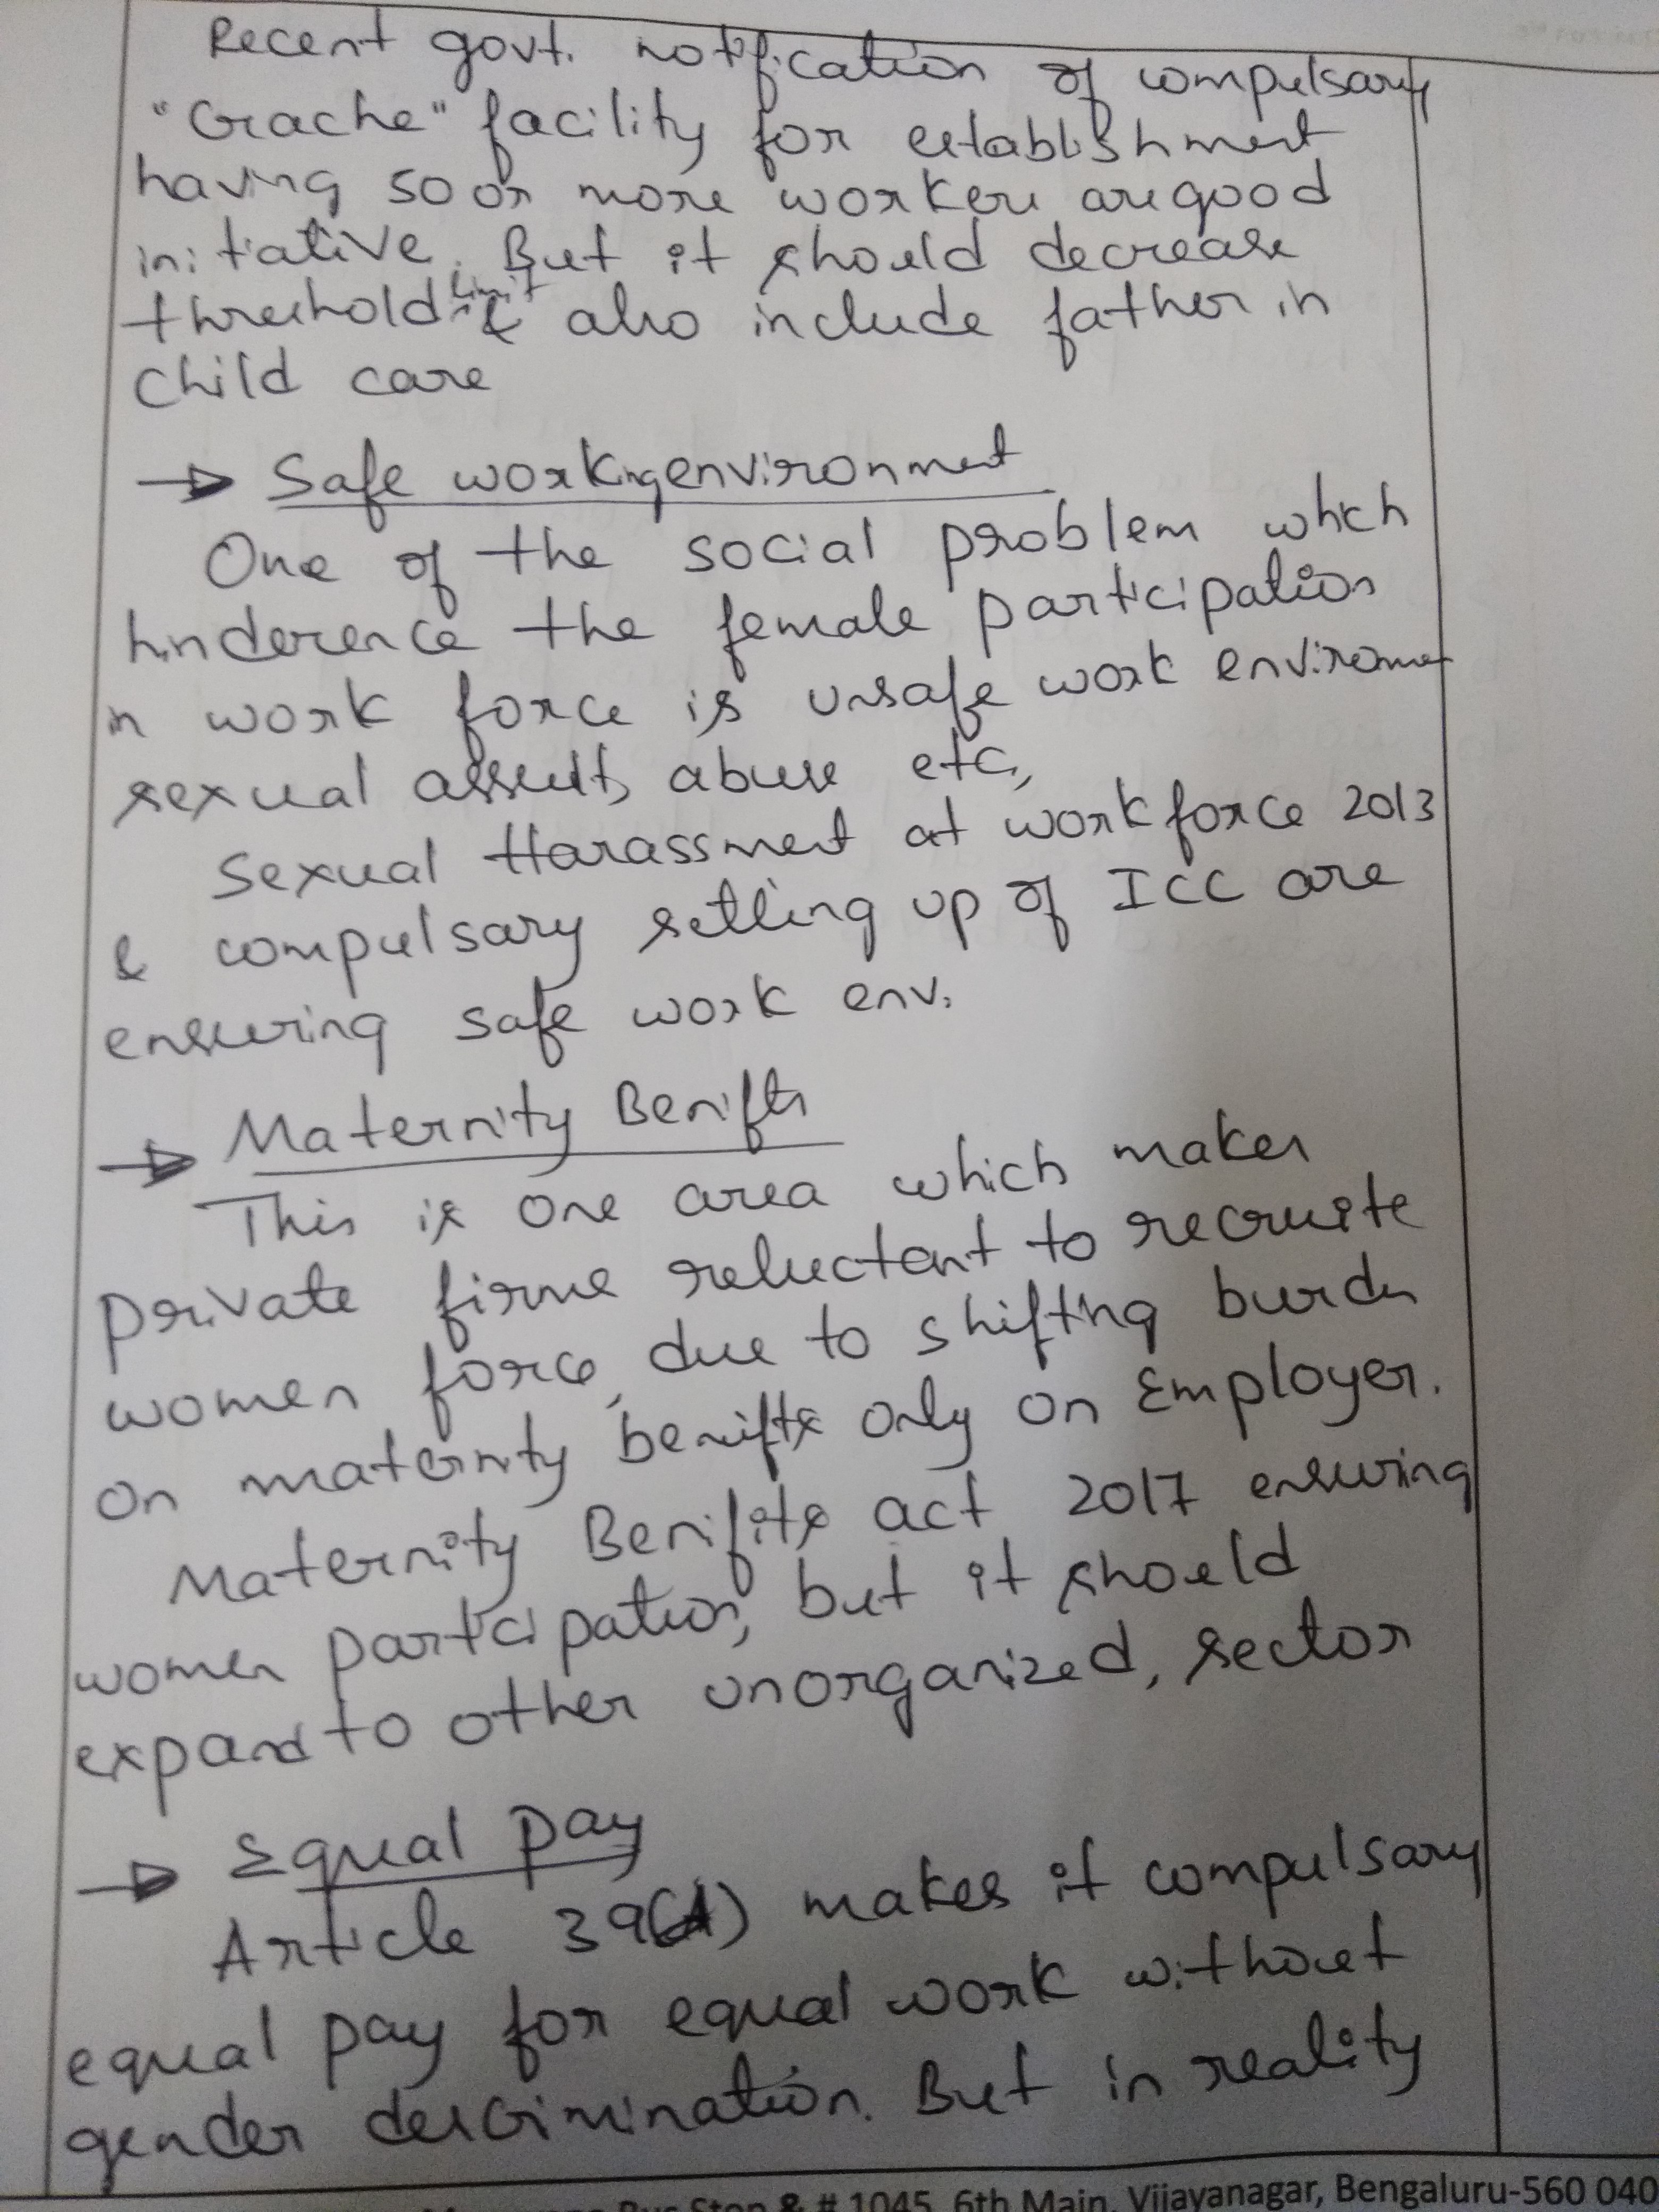 Recent govt. notification of compulsary
"Crache" facility for establishment
having 50 or more workers are good
initiative. But it should decrease
threshold limit & also include father in
child care
→ Safe working environment
One of the social problem which
hinderence the female participation
in work force is unsafe work enviromen
sexual assult, abuse etc,
Sexual Harassment at workforce 2013
& compulsary setting up of ICC are
ensuring safe work env.
→ Maternity Benifts
This is one area which makes
private firms reluctant to recruite
women force, due to shifting burden
on maternity benifts only on Employer.
Maternity Benifits act 2017 ensuring
women participation, but it should
expand to other unorganized, sector
→ Equal pay
Article 39(d) makes it compulsary
equal pay for equal work without
gender descrimination. But in reality
Bus Stop & # 1045, 6th Main, Vijayanagar, Bengaluru-560 040